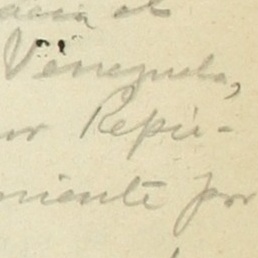 el
Venezuela,
Repú-
niente por